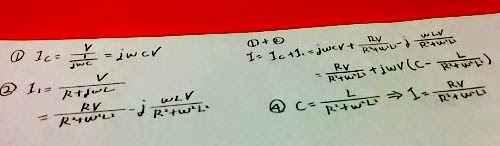 ① I_C = V / (1/jωC) = jωCV
② I₁ = V / (R+jωL)
= RV / (R²+ω²L²) - j ωLV / (R²+ω²L²)
①+②
I = I_C + I₁ = jωCV + RV / (R²+ω²L²) - j ωLV / (R²+ω²L²)
= RV / (R²+ω²L²) + jωV(C - L / (R²+ω²L²))
④ C = L / (R²+ω²L²) ⇒ I = RV / (R²+ω²L²)